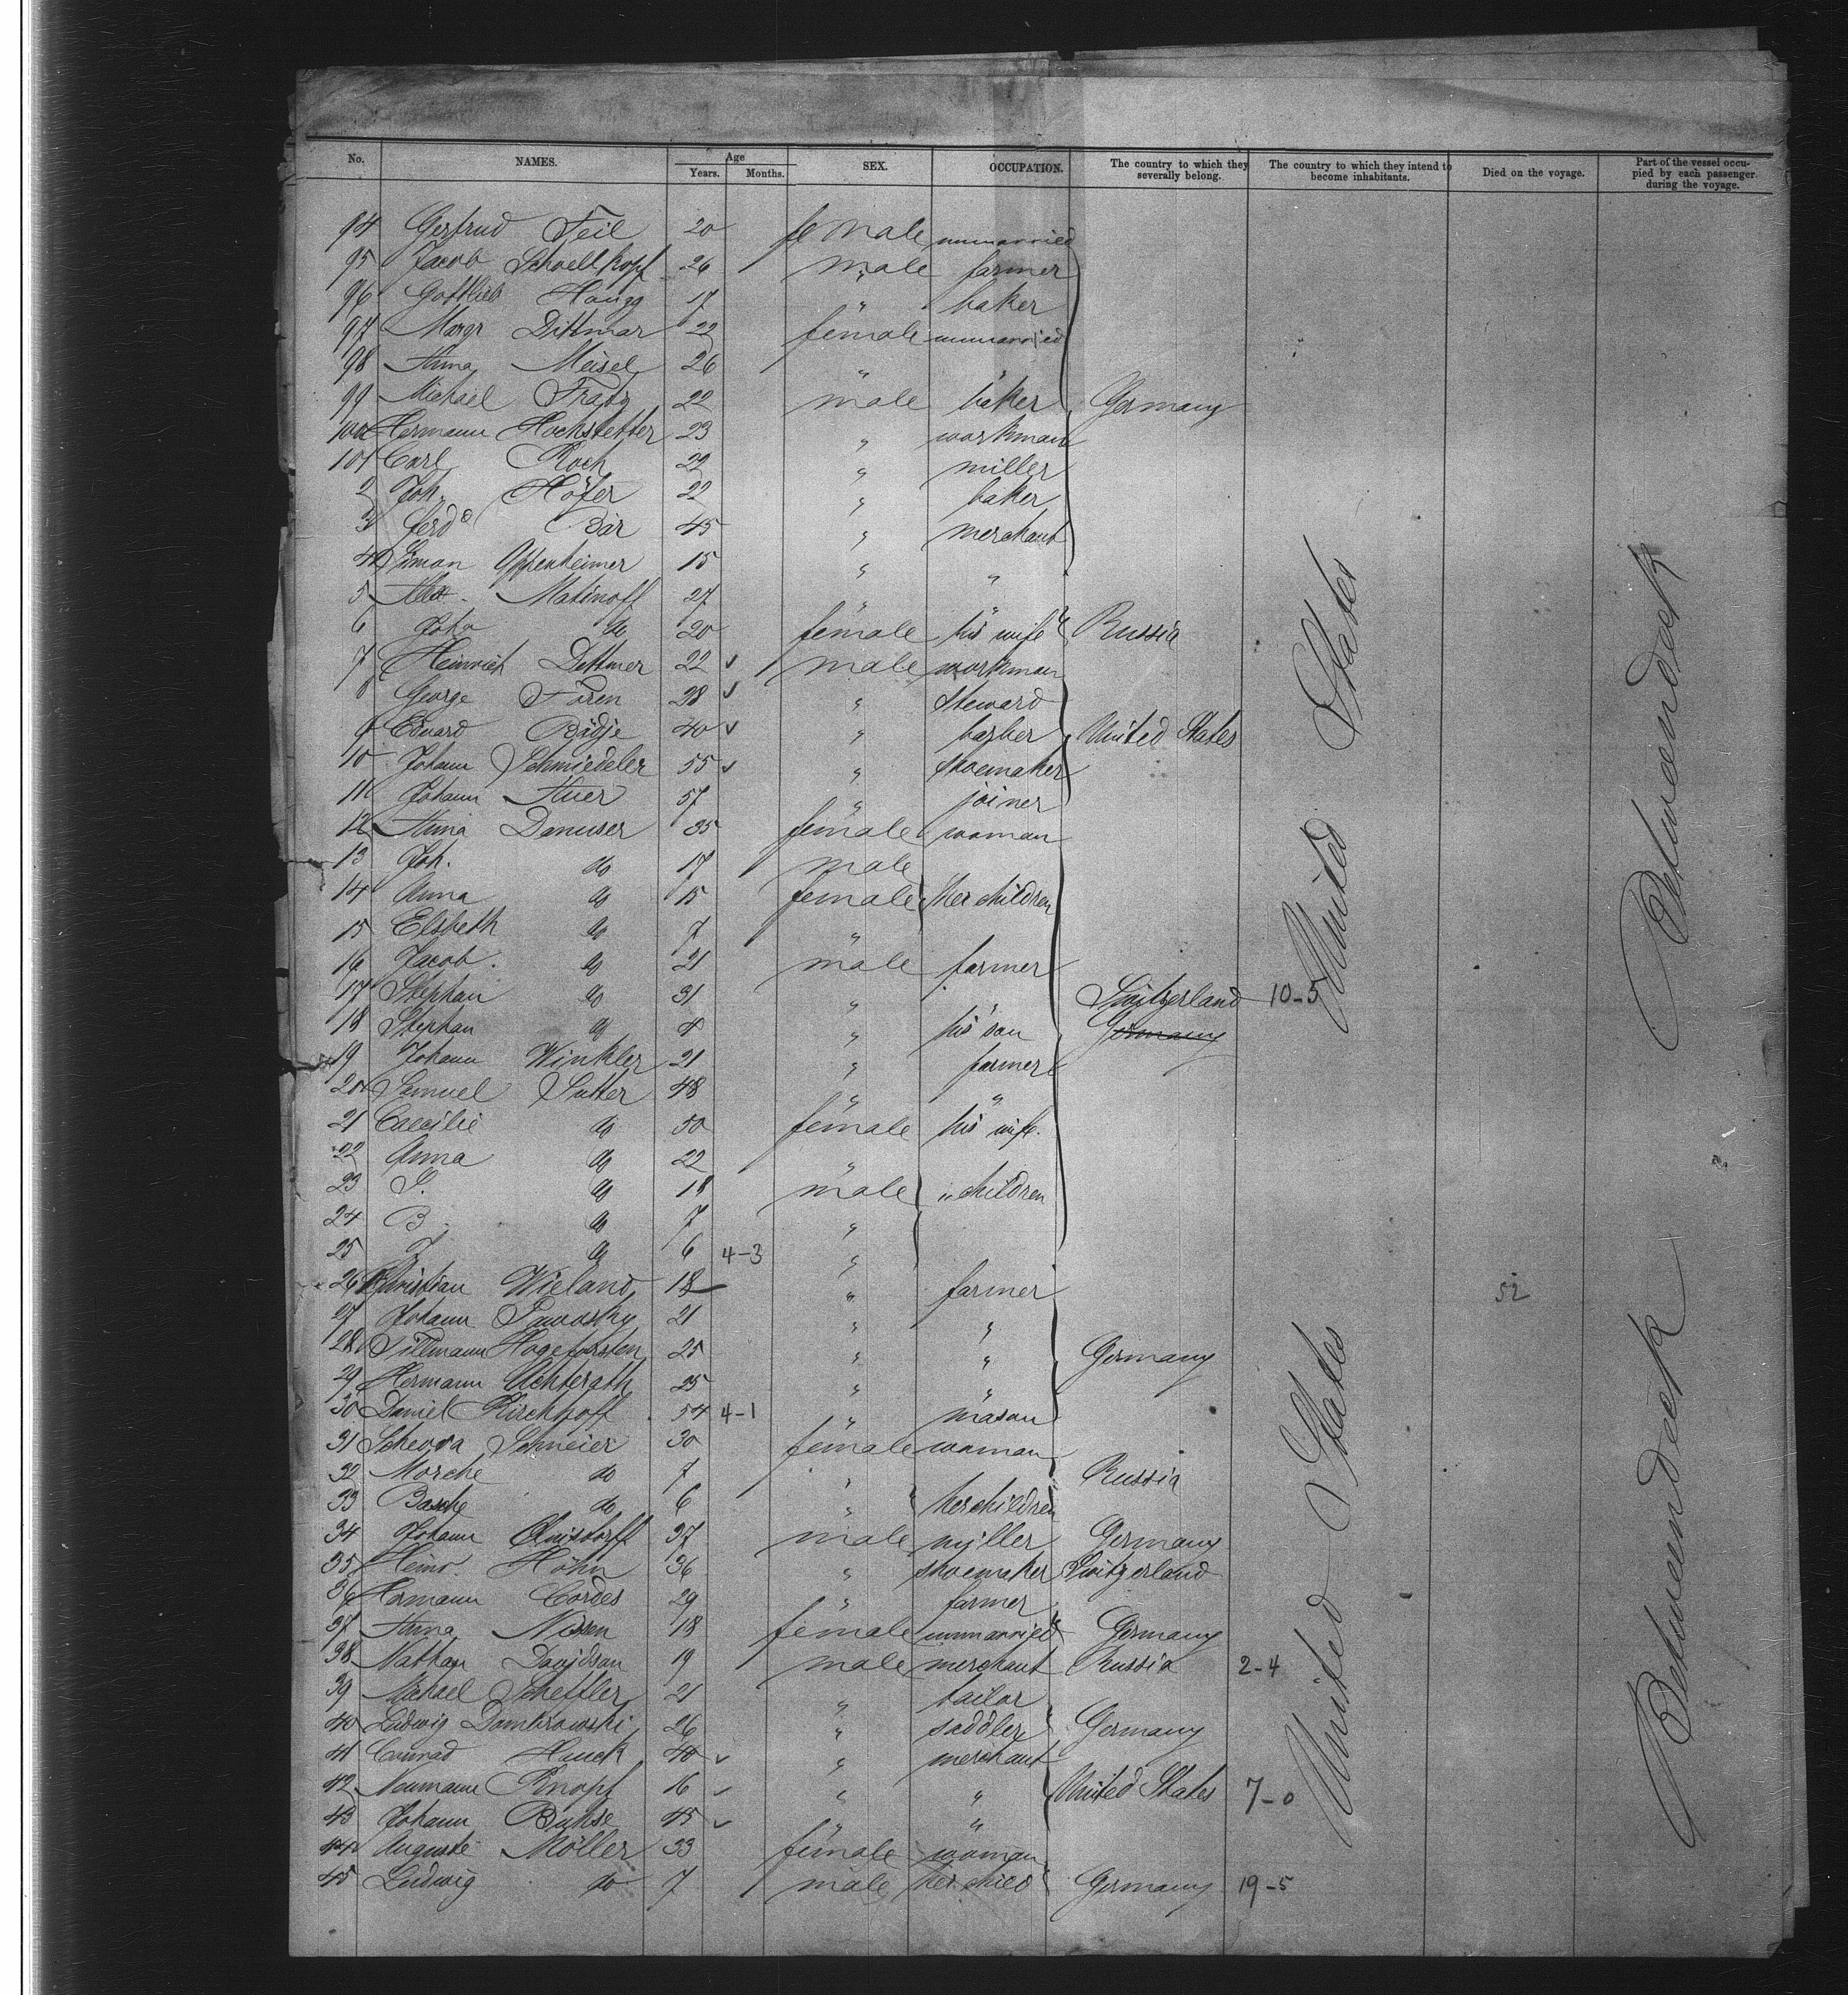 No. NAMES. Age Years. Months. SEX. OCCUPATION. The country to which they severally belong. The country to which they intend to become inhabitants. Died on the voyage. Part of the vessel occupied by each passenger during the voyage.
94 Gertrud Feil 20 female unmarried
95 Jacob Schoellkopf 26 male farmer
96 Gottlieb Haugg 17 " baker
97 Margr Dittmar 22 female unmarried
98 Anna Meisel 26 " "
99 Michael 22 male baker Germany
100 Hermann Hochstetter 23 " workman
101 Carl Koch 22 " miller
2 Joh. Höfer 22 " baker
3 Ferdd Bär 45 " merchant
4 Simon Oppenheimer 15 " "
5 Alex. Matinoff 27 " "
6 do 20 female his wife Russia
7 Heinrich Dettmer 22 male workman
8 George 28 " steward
9 Eduard 40 " barber United States
10 Johann Schmiedeler 55 " shoemaker
11 Johann Auer 57 " joiner
12 Anna Danuser 35 female woman
13 Joh. do 17 male
14 Anna do 15 female her children
15 Elsbeth do 7 "
16 Jacob. do 21 male farmer
17 Stephan do 31 " " Switzerland 10-5 United States Between deck
18 Stephan do 8 " his son Germany
19 Johann Winkler 21 " farmer
20 Samuel Sutter 48 " "
21 Caecilie do 50 female his wife.
22 Anna do 22 "
23 S. do 18 male " children
24 B. do 7 "
25 J. do 6 4-3 "
26 Christian Wieland 18 " farmer 52
27 Johann 21 " "
28 Tillmann Hogeforsten 25 " " Germany
29 Hermann Achterath 25 " "
30 Daniel Kirchhoff 54 4-1 " mason
31 Schneier 30 female woman
32 Morche do 7 " Russia
33 Basche do 6 " her children
34 Johann 37 male miller Germany
35 Heinr. Höhn 36 " shoemaker Switzerland
36 Hermann Cordes 29 " farmer
37 Anna Nissen 18 female unmarried Germany
38 Nathan Davidson 19 male merchant Russia 2-4
39 Michael Scheffler 21 " tailor
40 Ludwig Dombrowski 26 " saddler Germany
41 Conrad Hauck 40 " merchant
42 Neumann Knopf 16 " " United States 7-0 United States Between deck
43 Johann Buhse 45 " "
44 Auguste Möller 33 female woman
45 Ludwig do 7 male her child Germany 19-5